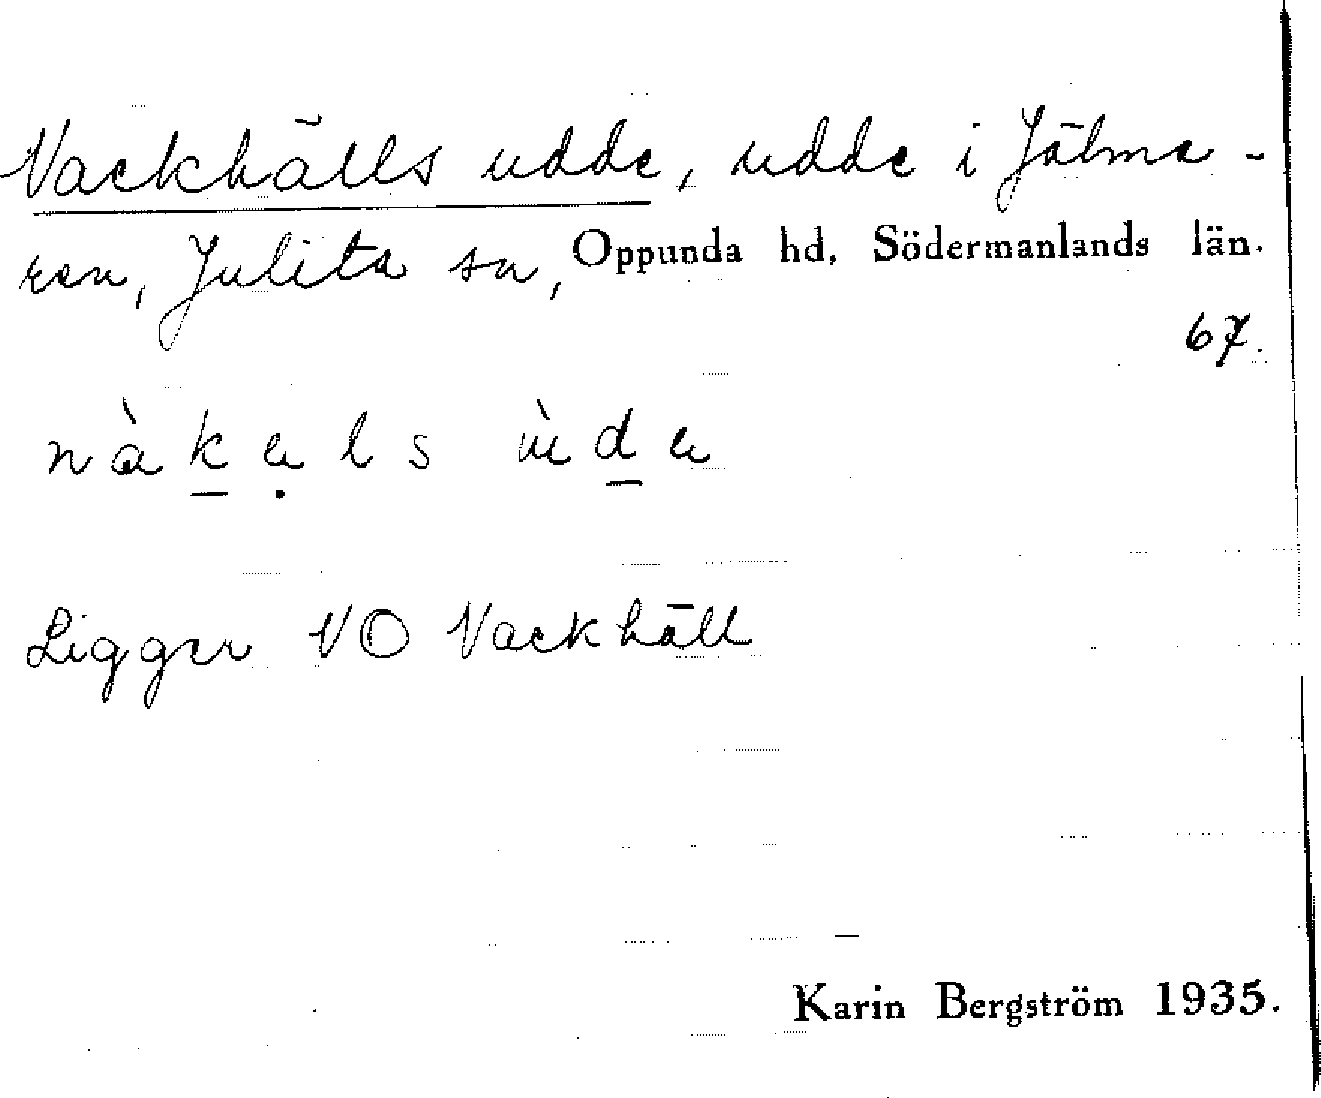 Nackhälls udde, udde i Jälma-
ren, Julita sn, Oppunda hd, Södermanlands län.
67.
nàk̲ạls ùd̲a
Ligger NO Nackhäll
Karin Bergström 1935.